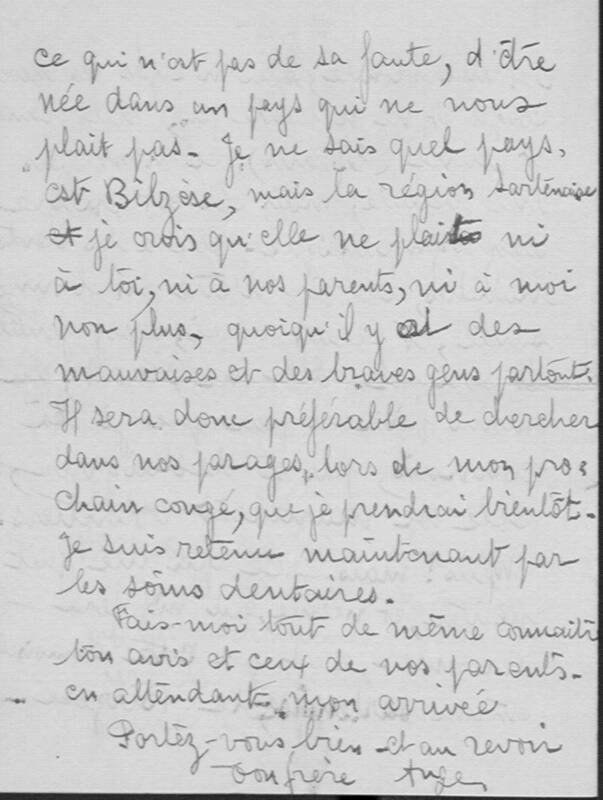 ce qui n'est pas de sa faute, d'être
née dans un pays qui ne nous
plait pas. Je ne sais quel pays,
est Bilzèse, mais la région Sartènaise
et je crois qu'elle ne plait ni
à toi, ni à nos parents, ni à moi
non plus, quoiqu'il y ait des
mauvaises et des braves gens partout.
Il sera donc préférable de chercher
dans nos parages, lors de mon pro=
chain congé, que je prendrai bientôt.
Je suis retenu maintenant par
les soins dentaires.
Fais-moi tout de même connaitre
ton avis et ceux de nos parents.
en attendant mon arrivée
Portez-vous bien et au revoir
Ton frère Ange